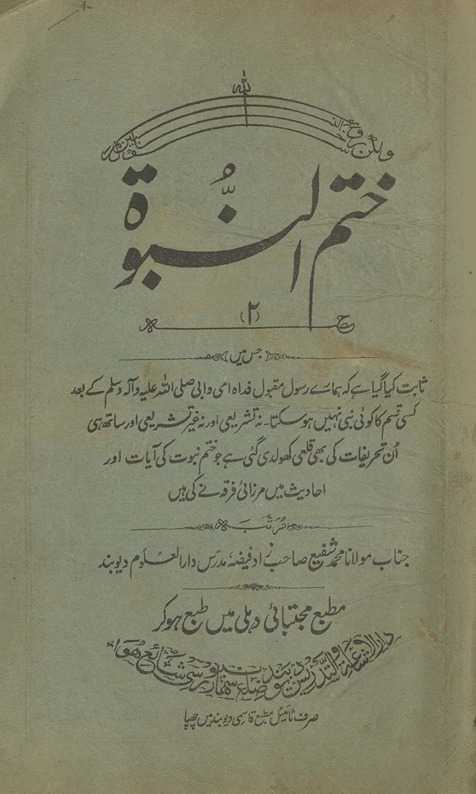 للہ
ولكن رسول الله وخاتم النبيين
ختم النبوة
(۲)
جس میں
ثابت کیا گیا ہے کہ ہمارے رسول مقبول فداہ امی وابی صلی اللہ علیہ وآلہ وسلم کے بعد
کسی قسم کا کوئی نبی نہیں ہو سکتا۔ نہ تشریعی اور نہ غیر تشریعی اور ساتھ ہی
اُن تحریفات کی بھی قلعی کھولدی گئی ہے جو ختم نبوت کی آیات اور
احادیث میں مرزائی فرقہ نے کی ہیں
مرتبہ
جناب مولانا محمد شفیع صاحب زاد فیضہٗ مدرس دار العلوم دیوبند
مطبع مجتبائی دہلی میں طبع ہو کر
دار الاشاعۃ والتدریس دیوبند ضلع سہارنپور سی شائع ہوا
صرف ٹائیٹل مطبع قاسمی دیوبند میں چھپا